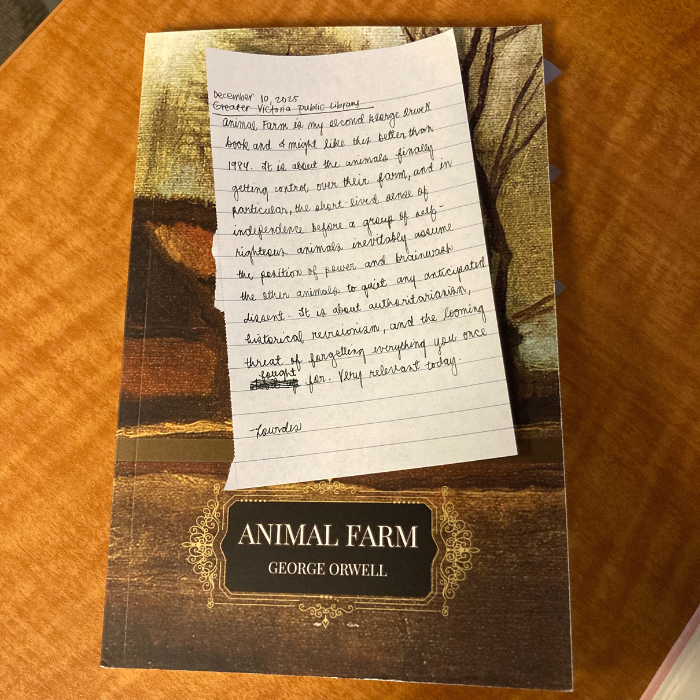 December 10, 2025
Greater Victoria Public Library
Animal Farm is my second George Orwell
book and I might like this better than
1984. It is about the animals finally
getting control over their farm, and in
particular, the short-lived sense of
independence before a group of self-
righteous animals inevitably assume
the position of power and brainwash
the other animals to quiet any anticipated
dissent. It is about authoritarianism,
historical revisionism, and the looming
threat of forgetting everything you once
fought for. Very relevant today.
-Lourdes
ANIMAL FARM
GEORGE ORWELL